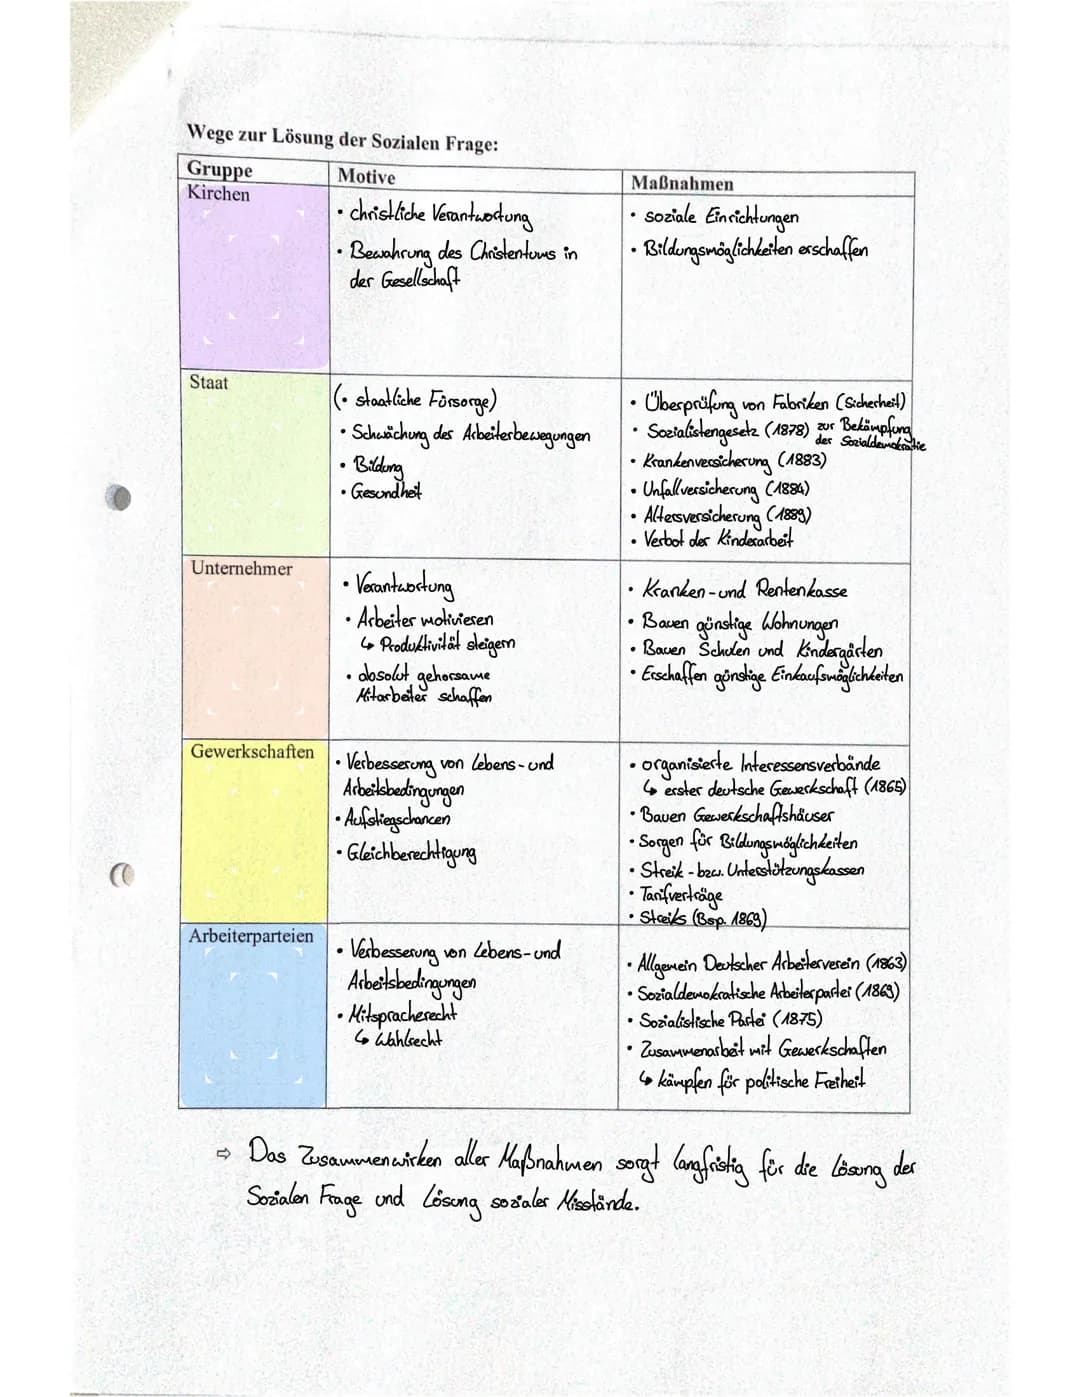 Wege zur Lösung der Sozialen Frage:
Gruppe
Motive
Maßnahmen
Kirchen
• christliche Verantwortung
• Bewahrung des Christentums in
der Gesellschaft
• soziale Einrichtungen
• Bildungsmöglichkeiten erschaffen
Staat
(• staatliche Fürsorge)
• Schwächung der Arbeiterbewegungen
• Bildung
• Gesundheit
• Überprüfung von Fabriken (Sicherheit)
• Sozialistengesetz (1878) zur Bekämpfung
der Sozialdemokratie
• Krankenversicherung (1883)
• Unfallversicherung (1884)
• Altersversicherung (1889)
• Verbot der Kinderarbeit
Unternehmer
• Verantwortung
• Arbeiter motivieren
↳ Produktivität steigern
• absolut gehorsame
Mitarbeiter schaffen
• Kranken- und Rentenkasse
• Bauen günstige Wohnungen
• Bauen Schulen und Kindergärten
• Erschaffen günstige Einkaufsmöglichkeiten
Gewerkschaften
• Verbesserung von Lebens- und
Arbeitsbedingungen
• Aufstiegschancen
• Gleichberechtigung
• organisierte Interessensverbände
↳ erster deutsche Gewerkschaft (1865)
• Bauen Gewerkschaftshäuser
• Sorgen für Bildungsmöglichkeiten
• Streik- bzw. Unterstützungskassen
• Tarifverträge
• Streiks (Bsp. 1869)
Arbeiterparteien
• Verbesserung von Lebens- und
Arbeitsbedingungen
• Mitspracherecht
↳ Wahlrecht
• Allgemein Deutscher Arbeiterverein (1863)
• Sozialdemokratische Arbeiterpartei (1869)
• Sozialistische Partei (1875)
• Zusammenarbeit mit Gewerkschaften
↳ kämpfen für politische Freiheit
⇨ Das Zusammenwirken aller Maßnahmen sorgt langfristig für die Lösung der
Sozialen Frage und Lösung sozialer Misstände.